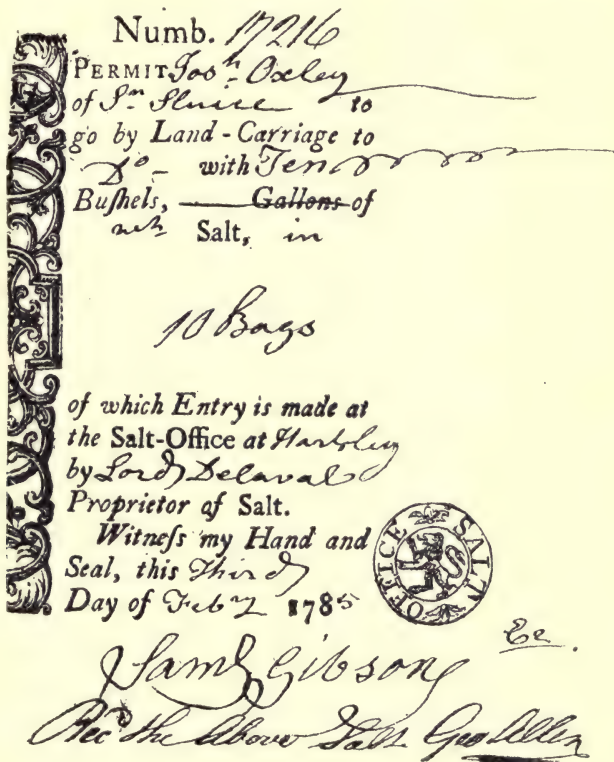 Numb. 17216
PERMIT Josh. Oxley
of Sn. Sluice to
go by Land-Carriage to
Do. with Ten
Buſhels, Gallons of
Salt, in
10 Bags
of which Entry is made at
the Salt-Office at Hartley
by Lord Delaval
Proprietor of Salt.
Witneſs my Hand and
Seal, this Third
Day of Feby 1785
SALT OFFICE
Saml Gibson
Recd the Above Salt Geo Allen